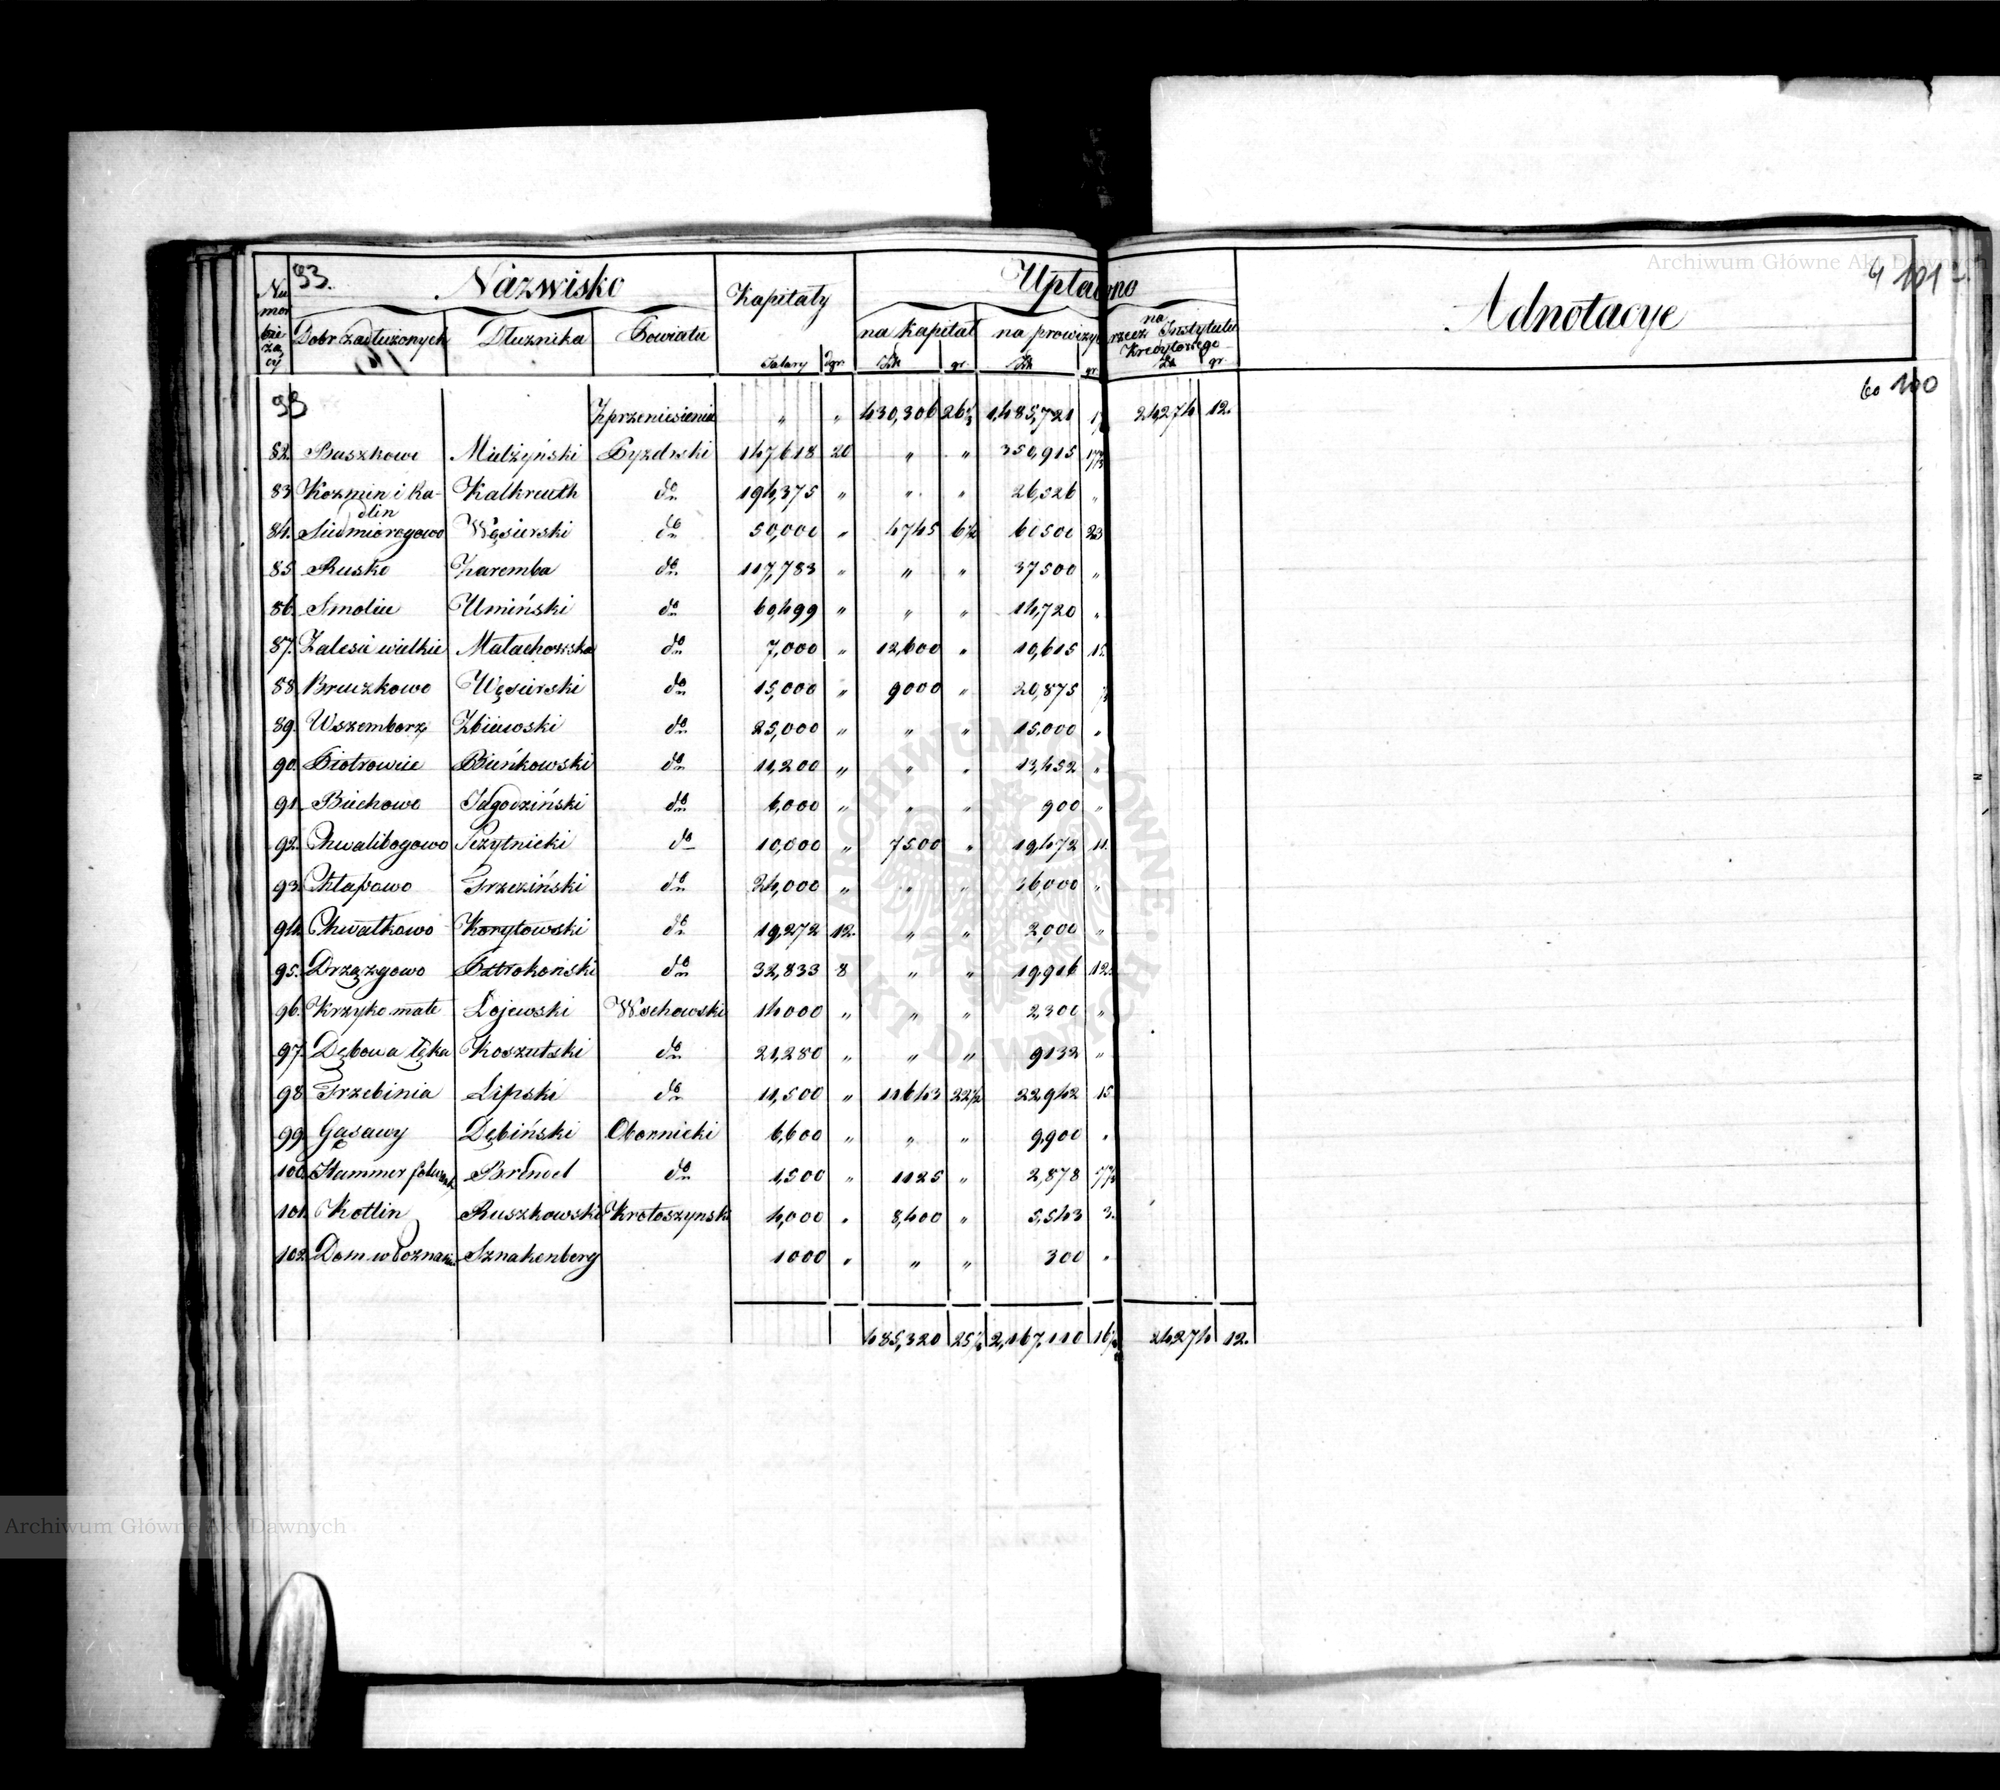 Archiwum Główne Akt Dawnych
93. Nazwisko Kapitały Upłacono Adnotacye 101
Numer bieżący Dobr zadłużonych Dłużnika Powiatu na kapitał na prowizye na rzecz Instytutu Kredytowego
Talary dgr. Złt gr. Złt gr. Zł gr.
100
93 Z przeniesienia " " 430,306 26 1,485,721 24274 12.
82. Ruszkowo Mielżyński Pyzdrski 147,618 20 " " 350,915
83 Kozmin i Radlin Kalkreuth do 194,375 " " " 26,526 "
84. Siedmiorogowo Węsierski do 50,000 " 4745 60500 23
85 Rusko Zaremba do 117,783 " " " 37500 "
86. Smolice Umiński do 60,499 " " " 14,720 "
87. Zalesie wielkie Małachowska do 7,000 " 12,600 " 10,615 15.
88 Bruczkowo Węsierski do 15,000 " 9000 " 20,875
89. Wszemborz Zbiiewski do 25,000 " " " 15,000 "
90. Piotrowice Bieńkowski do 11,200 " " " 13,452 "
91. Biechowo Jagodziński do 6,000 " " " 900 "
92. Chwalibogowo do 10,000 " 7500 " 19,472 11.
93. Chłapowo Trzeziński do 24,000 " " " 36,000 "
94. Chwałkowo Korytowski do 19,272 12. " " 2,000 "
95. Drzązgowo Ostrokoński do 32,833 8 " " 19,916 12.
96. Krzyko małe Łojewski Wschowski 14000 " " " 2,300 "
97. Dębowa łęka Koszutski do 21,280 " " " 9132 "
98. Trzebinia Lipski do 11,500 " 11643 22½ 22,942 15
99. Gąsawy Dębiński Obornicki 6,600 " " " 9,900 "
100. Hammer folwark Brendel do 1,500 " 1125 " 2,878
101. Kotlin Ruszkowski Krotoszynski 4,000 " 8,400 " 5,543 3.
102. Dom w Poznaniu Sznakenberg 1000 " " " 300 "
485,320 2,167,110 24274 12.
ARCHIWUM GŁÓWNE AKT DAWNYCH
Archiwum Główne Akt Dawnych